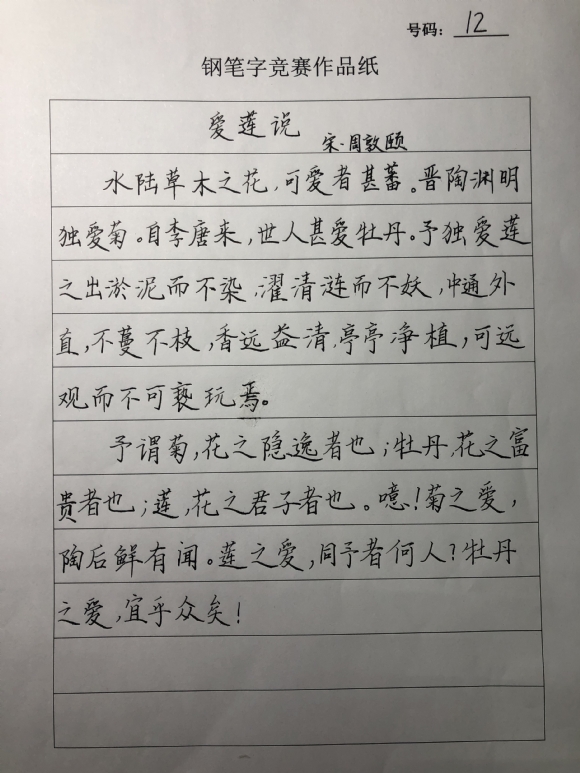 号码：12
钢笔字竞赛作品纸
爱莲说
宋·周敦颐
水陆草木之花，可爱者甚蕃。晋陶渊明
独爱菊。自李唐来，世人甚爱牡丹。予独爱莲
之出淤泥而不染，濯清涟而不妖，中通外
直，不蔓不枝，香远益清，亭亭净植，可远
观而不可亵玩焉。
予谓菊，花之隐逸者也；牡丹，花之富
贵者也；莲，花之君子者也。噫！菊之爱，
陶后鲜有闻。莲之爱，同予者何人？牡丹
之爱，宜乎众矣！